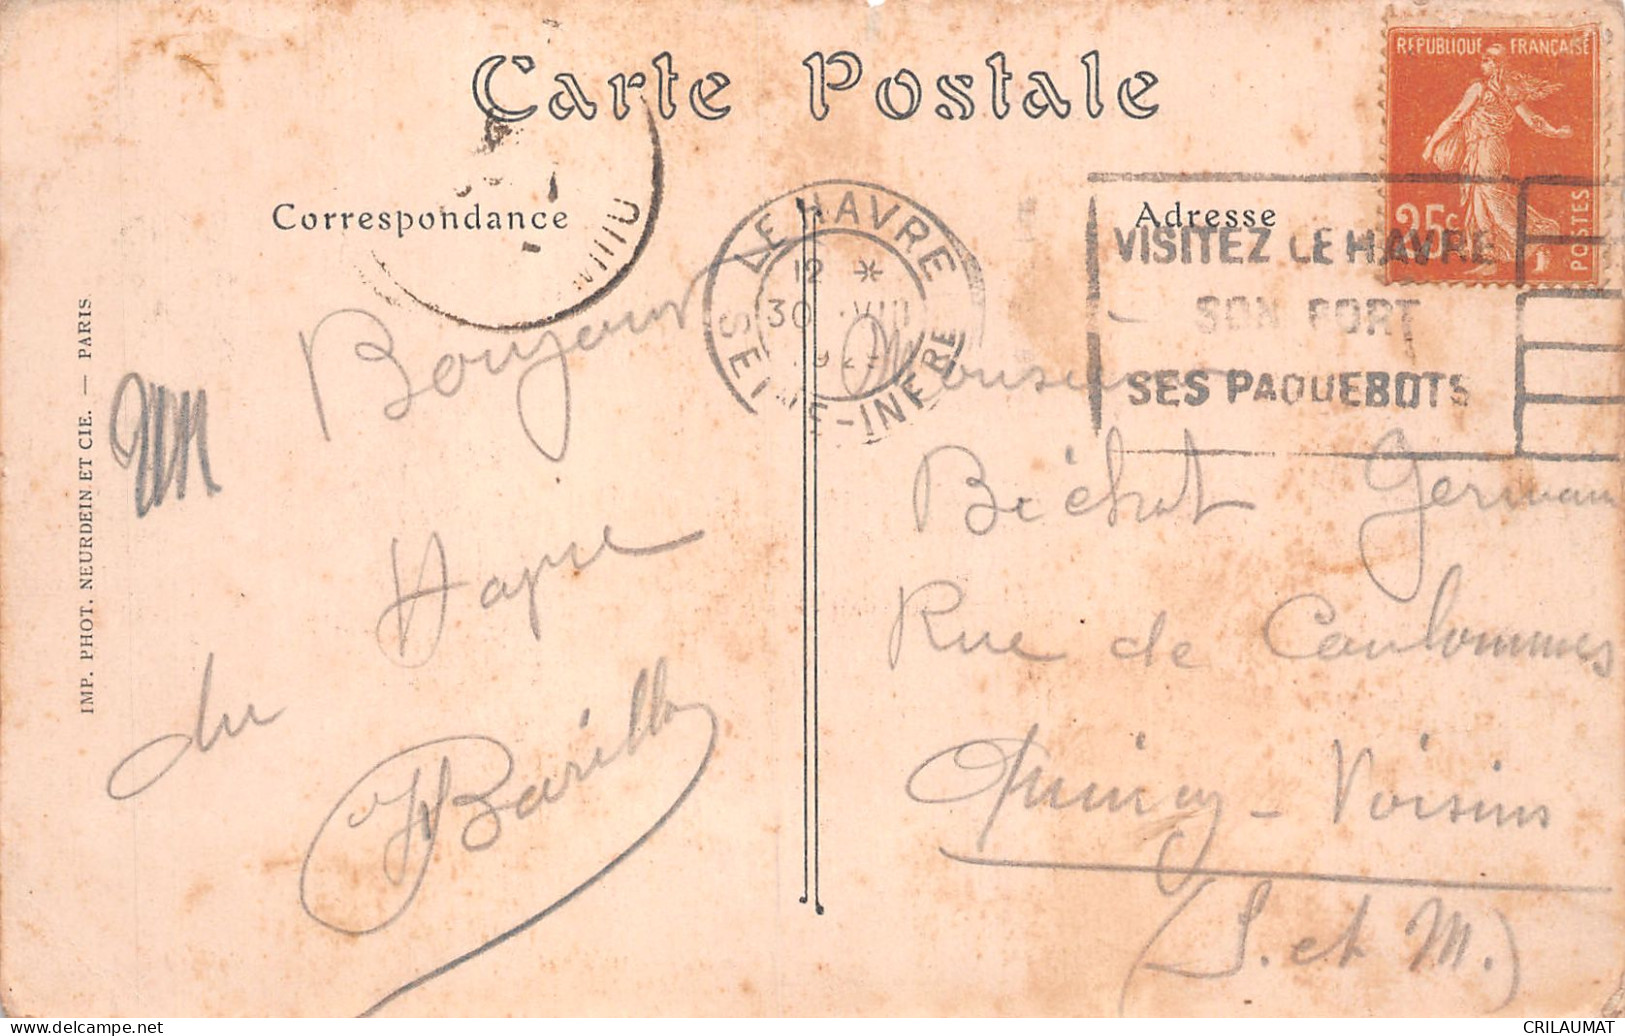 Carte Postale
Correspondance
Adresse
RÉPUBLIQUE FRANÇAISE
25c
POSTES
LE HAVRE
12 *
30 VIII
SEINE-INFRE
VISITEZ LE HAVRE
SON PORT
SES PAQUEBOTS
IMP. PHOT. NEURDEIN ET CIE. — PARIS
Bonjour
du Havre
Monsieur
Béchot Germain
Rue de Coulommes
Quincy-Voisins
(S. et M.)
CRILAUMAT